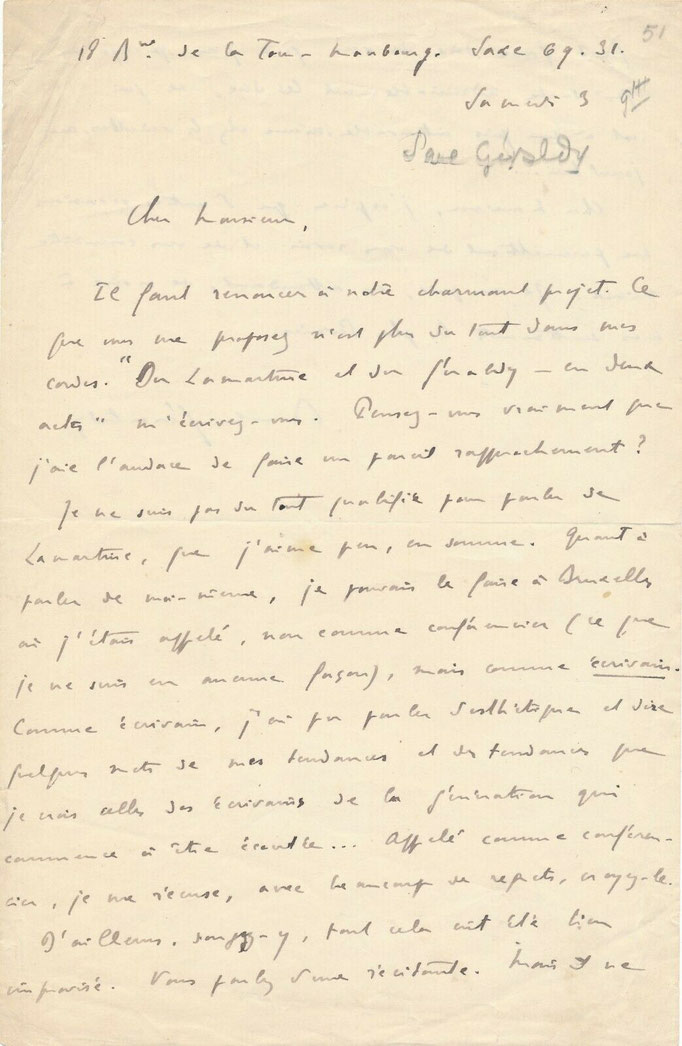 51
18 Bd de la Tour-Maubourg. Saxe 69.31.
Samedi 3
Géraldy
Cher Monsieur,
Il faut renoncer à notre charmant projet. Ce
que vous me proposez n'est plus du tout dans mes
cordes. "Du Lamartine et du Géraldy – en deux
actes" m'écrivez-vous. Pensez-vous vraiment que
j'aie l'audace de faire un pareil rapprochement ?
Je ne suis pas du tout qualifié pour parler de
Lamartine, que j'aime peu, en somme. Quant à
parler de moi-même, je pouvais le faire à Bruxelles
où j'étais appelé, non comme conférencier (ce que
je ne suis en aucune façon), mais comme écrivain.
Comme écrivain, j'ai pu parler d'esthétique et dire
quelques mots de mes tendances et des tendances que
je crois celles des écrivains de la génération qui
commence à être écoutée... Appelé comme conféren-
cier, je me récuse, avec beaucoup de regrets, croyez-le.
D'ailleurs, songez-y, tout cela eût été bien
improvisé. Vous parlez d'une récitante. Mais je ne